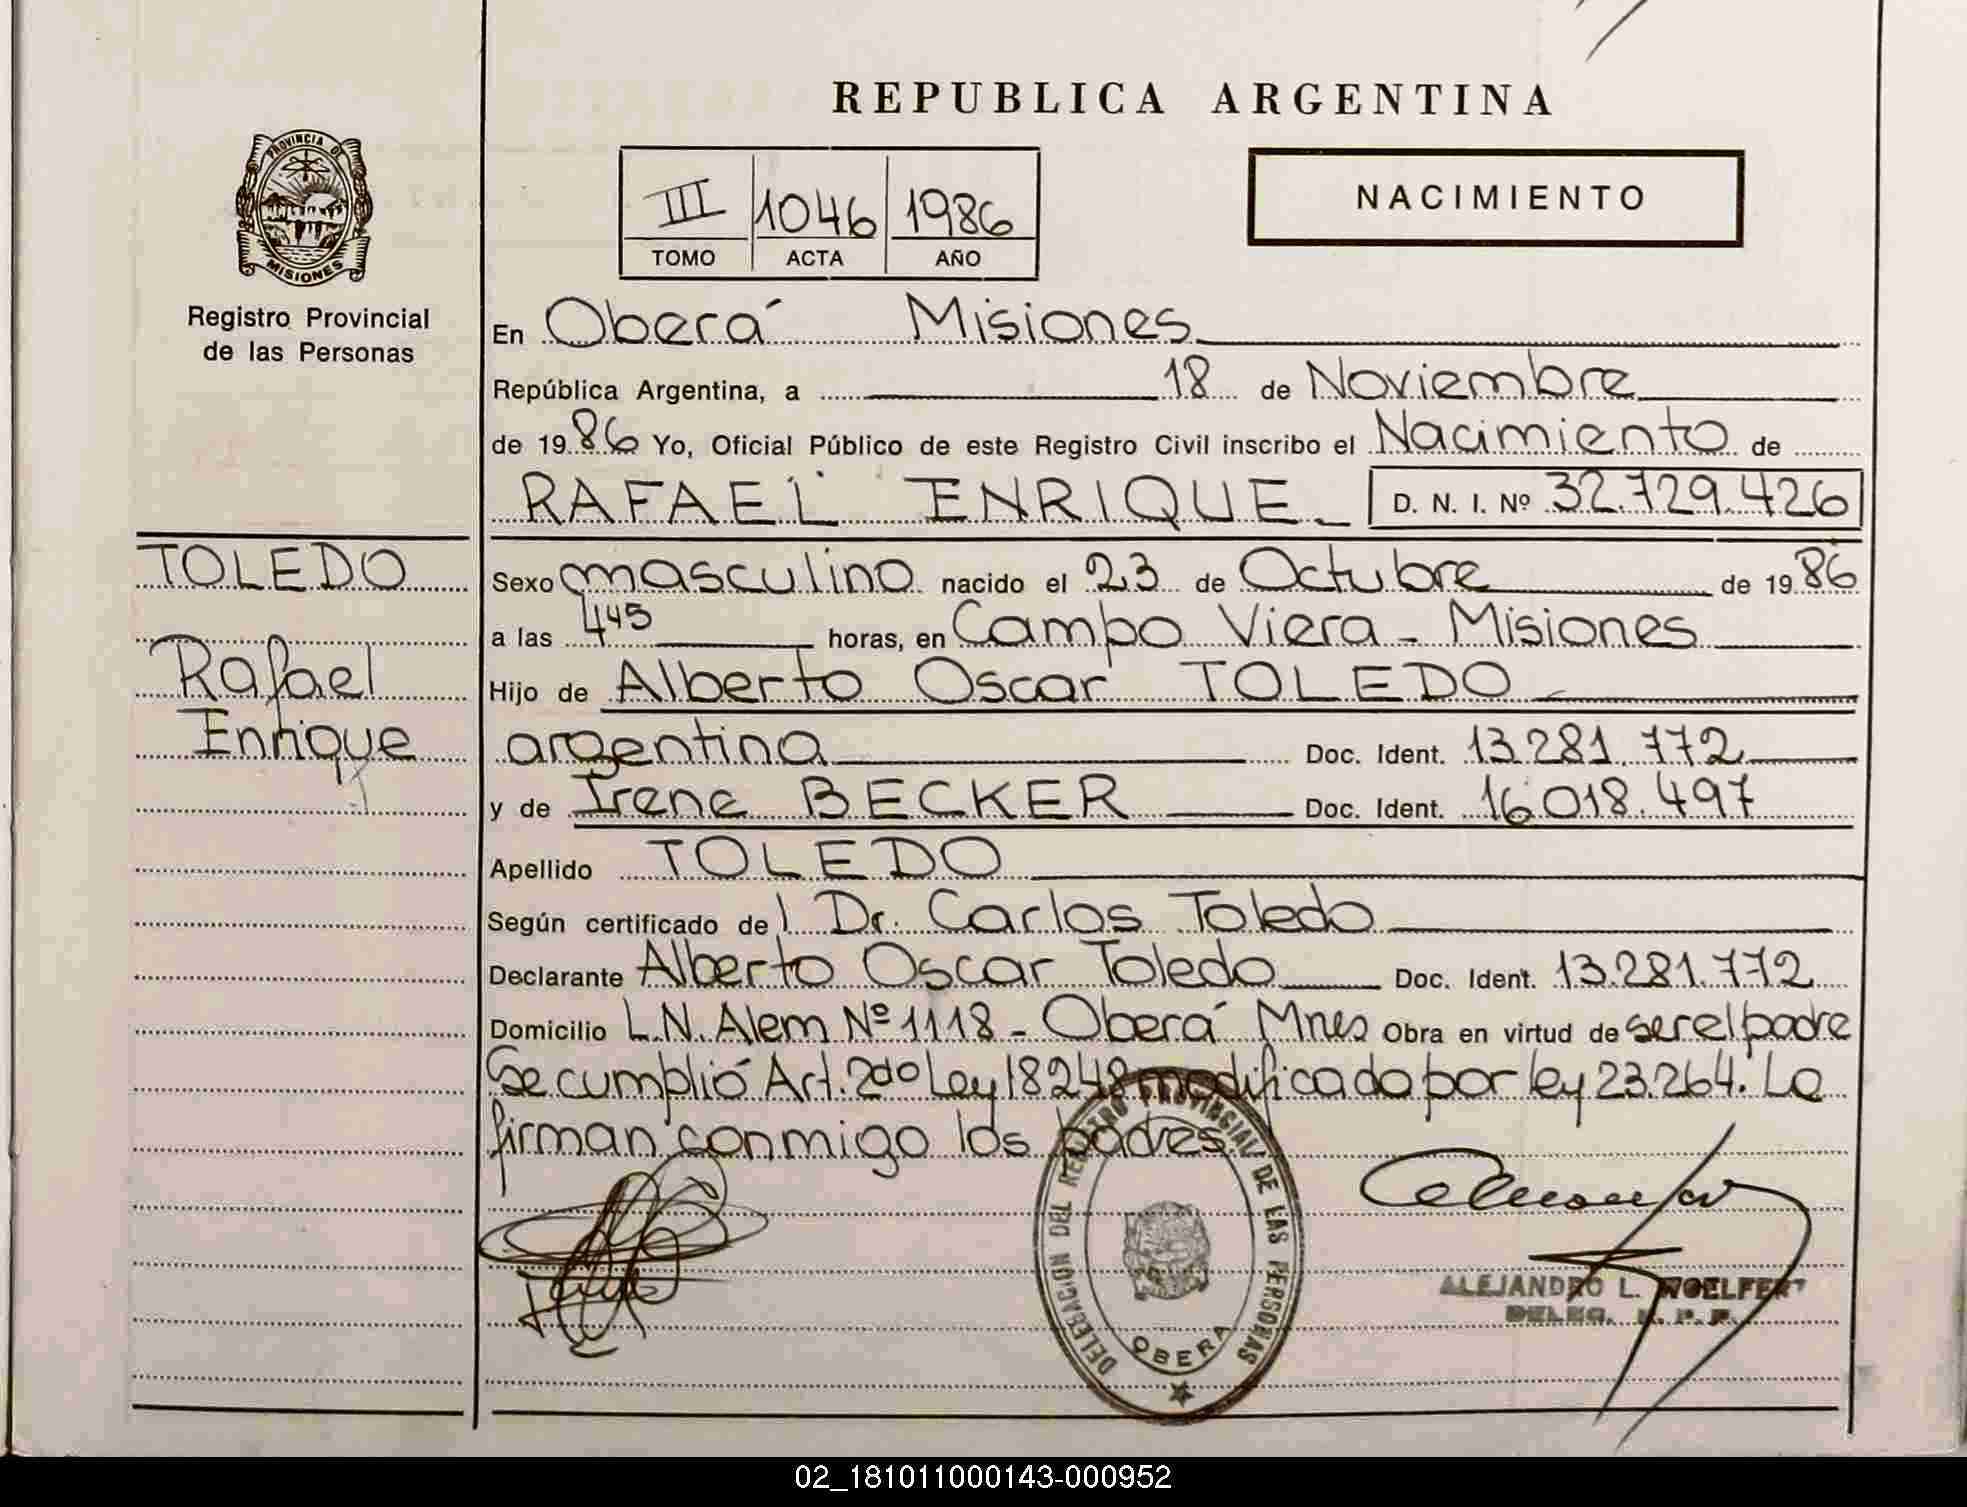 REPUBLICA ARGENTINA
PROVINCIA DE
MISIONES
Registro Provincial
de las Personas
III 1046 1986
TOMO ACTA AÑO
NACIMIENTO
En Oberá Misiones
República Argentina, a 18 de Noviembre
de 1986 Yo, Oficial Público de este Registro Civil inscribo el Nacimiento de
RAFAEL ENRIQUE D. N. I. Nº 32.729.426
TOLEDO
Rafael
Enrique
Sexo masculino nacido el 23 de Octubre de 1986
a las 4 45 horas, en Campo Viera - Misiones
Hijo de Alberto Oscar TOLEDO
argentina Doc. Ident. 13.281.772
y de Irene BECKER Doc. Ident. 16.018.497
Apellido TOLEDO
Según certificado del Dr. Carlos Toledo
Declarante Alberto Oscar Toledo Doc. Ident. 13.281.772
Domicilio L.N. Alem Nº 1118 - Oberá Mnes Obra en virtud de ser el padre
Se cumplió Art. 2do Ley 18248 modificada por ley 23.264. La
firman conmigo los padres
DELEGACION DEL REGISTRO PROVINCIAL DE LAS PERSONAS
OBERA
ALEJANDRO L. WOELFERT
DELEG. R. P. P.
02_181011000143-000952